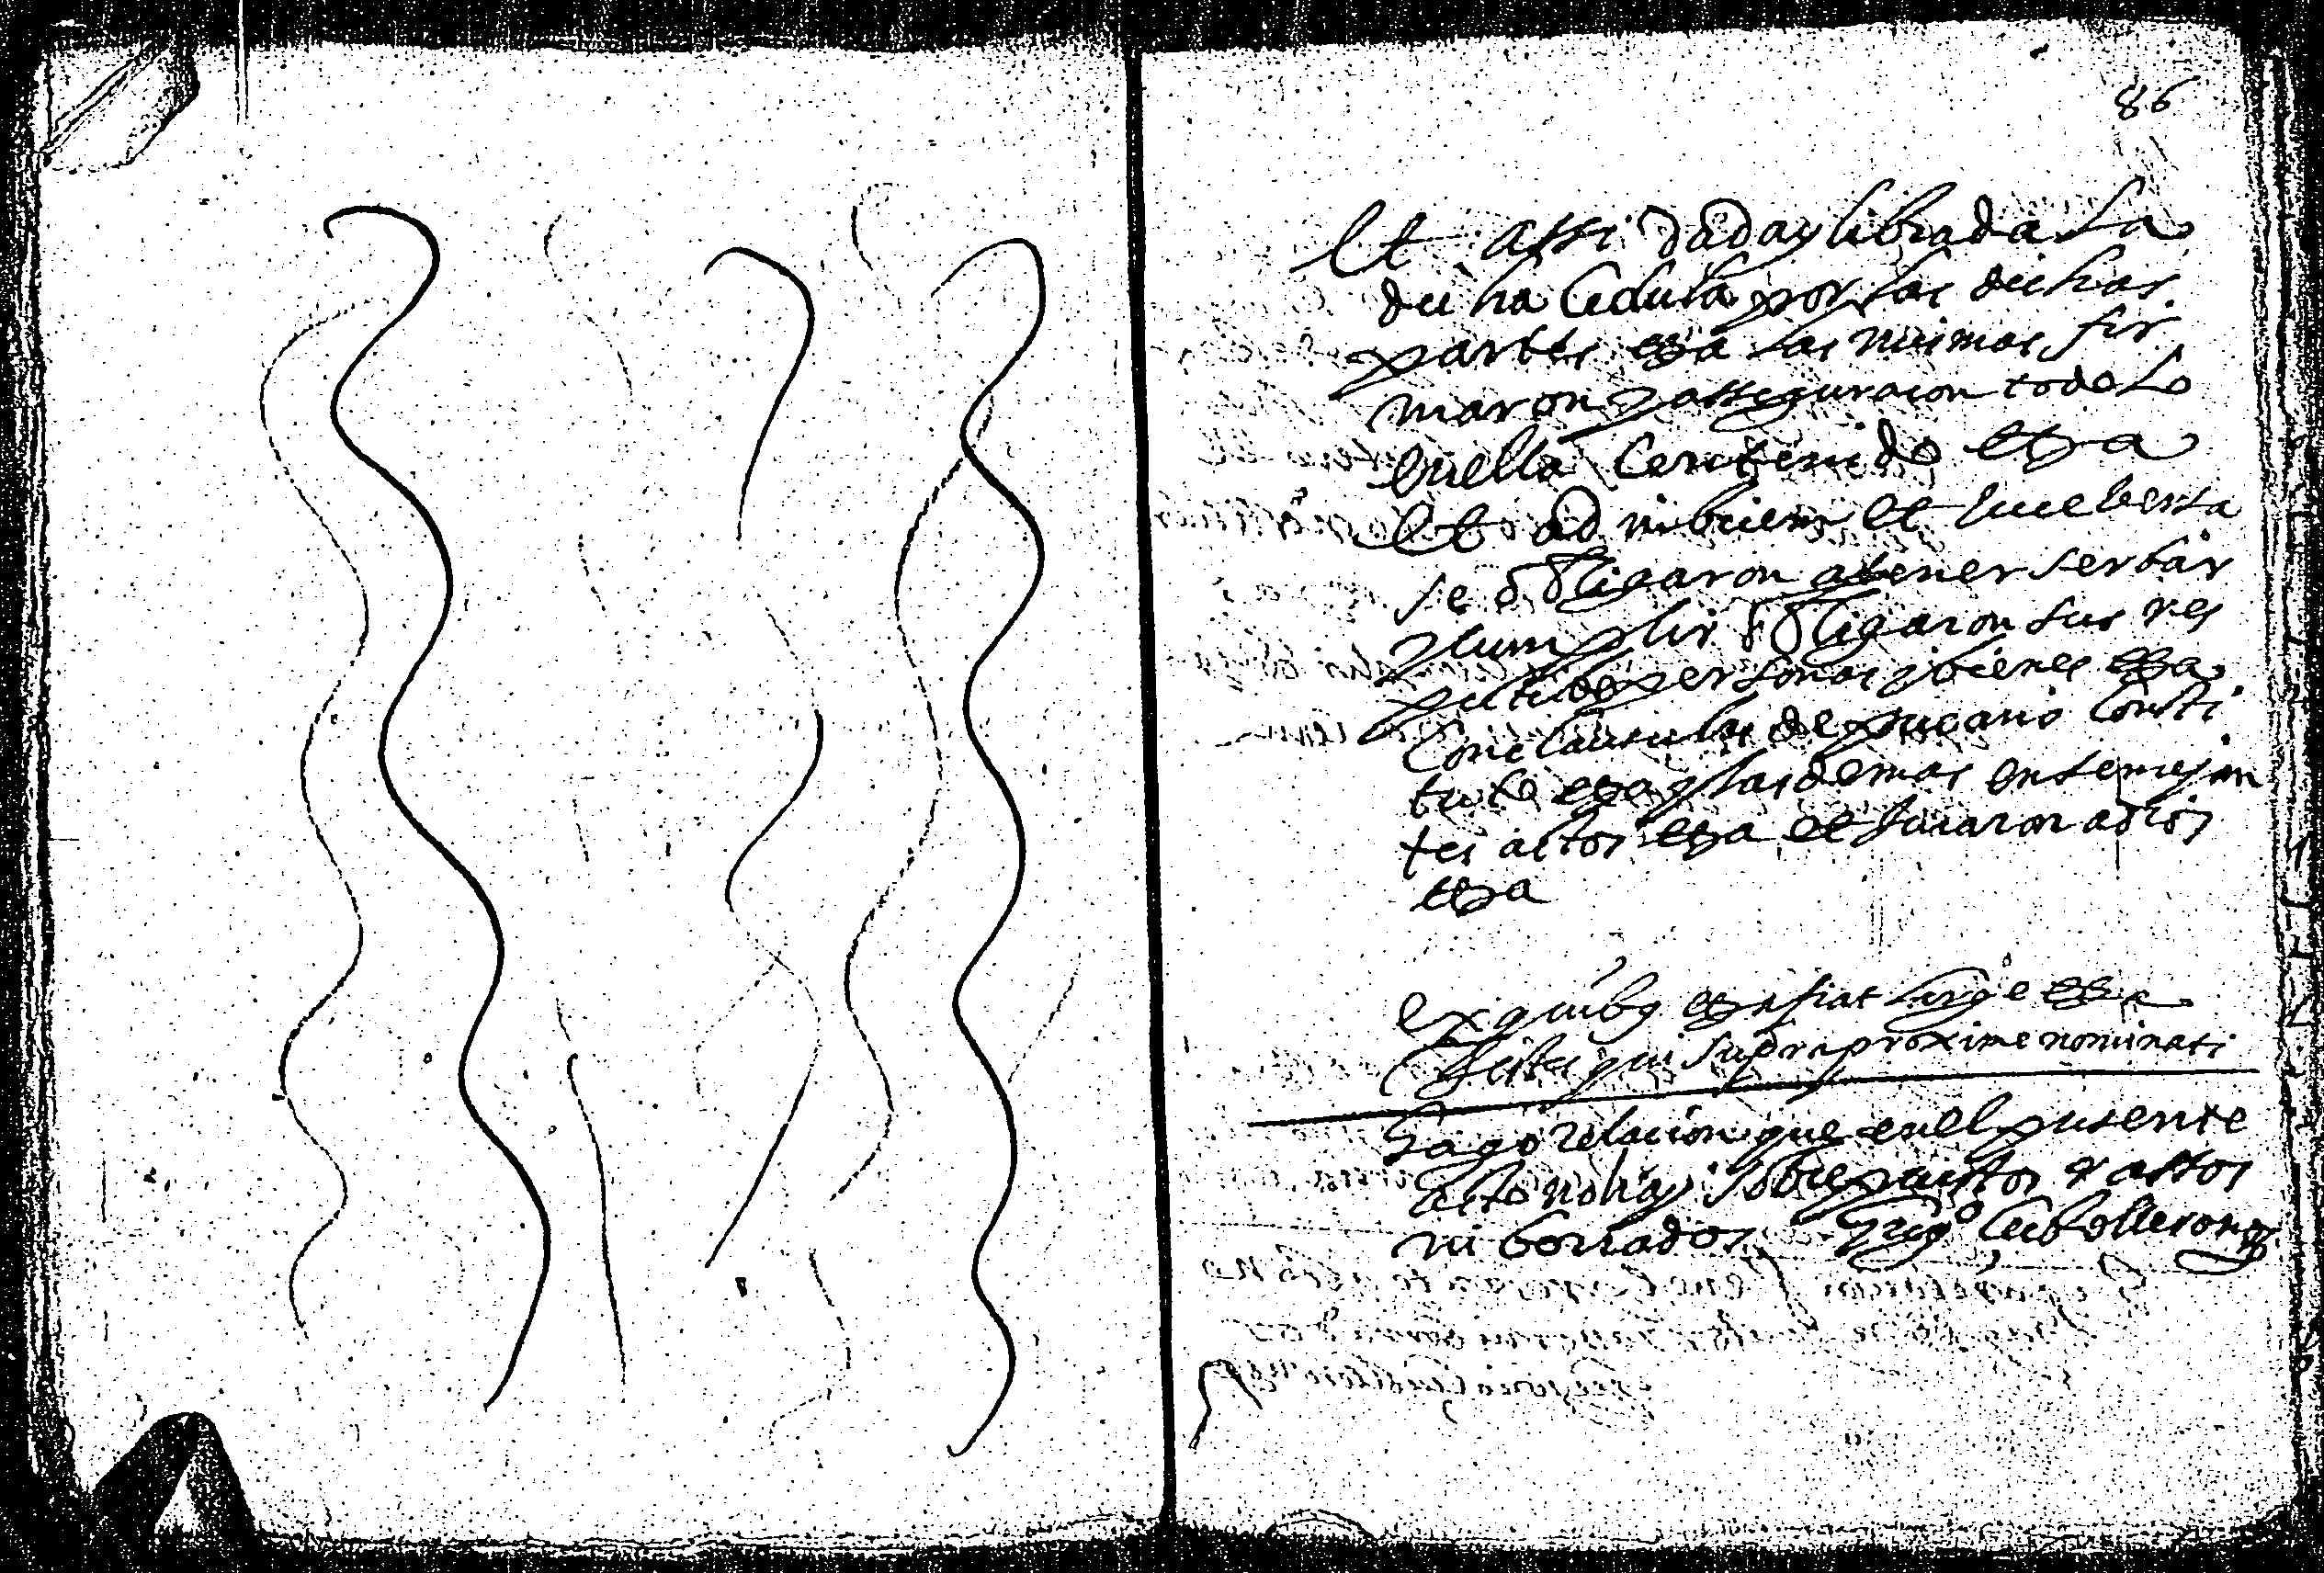 86
Et assi dada y librada la
dicha cedula por las dichas
partes etza las mismas fir
maron y asseguraron todo lo
en ella contenido etza
Et ad inbicem et lucebersa
se obligaron a tener serbar
y cumplir obligaron sus res
personas y bienes etza
con clausulas de precario consti
tuto etza y las demas en semejan
tes actos etza et juraron a dios
etza
ex quibus etza fiat large etza
testes qui supra proxime nominati
Hago relacion que en el presente
acto no hay sobrepuestos rassos
ni borrados Greg.º Cebolleron